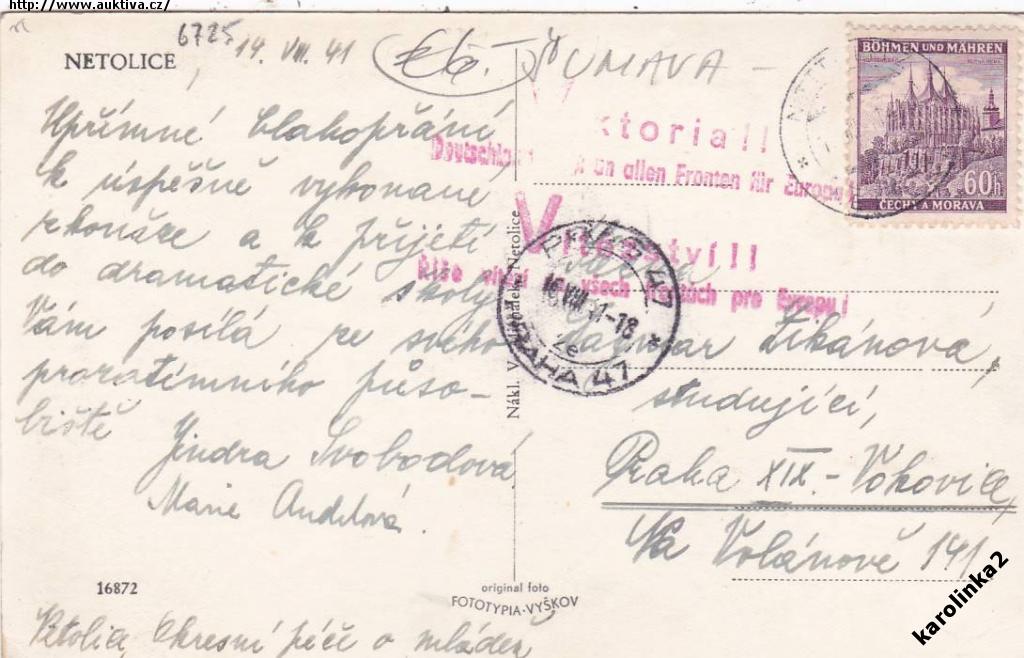 http://www.auktiva.cz/
6725
NETOLICE
14. VIII. 41
ŠUMAVA
BÖHMEN UND MÄHREN
60h
ČECHY A MORAVA
Upřímné blahopřání
k úspěšně vykonané
zkoušce a k přijetí
do dramatické školy
Vám posílá ze svého
prozatímního půso-
biště
Jindra Svobodová
Marie Andělová.
V ktoria!!
Deutschla an allen Fronten für Europa
Vítězství!!
Říše vítězí na všech frontách pro Evropu!
PRAHA 47
16. VIII 41-18
PRAHA 47
Nákl. V. Netolice
Zikánová,
studující,
Praha XIX.-Vokovice
Na Volánově 141
16872
original foto
FOTOTYPIA-VYŠKOV
Netolice, Okresní péče o mládež
karolinka2